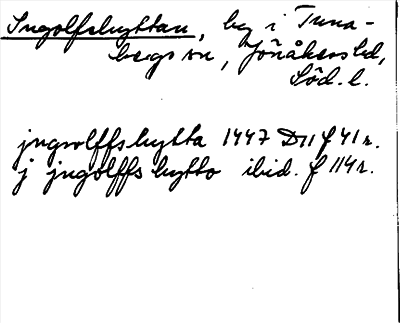 Ingolfshyttan, by i Tuna-
bergs sn, Jönåkers hd,
Söd. l.
jngwolffshytta 1447 D11 f 41 r.
j jngolffs hytto ibid. f 114 r.